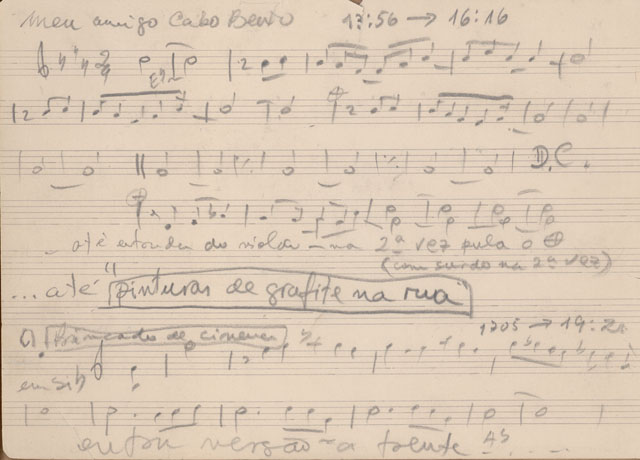 meu amigo Cabo Bento 13:56 → 16:16
D.C.
... até entrada do violão - na 2ª vez pula o ⊕
(com surdo na 2ª vez)
... até "pinturas de grafite na rua
C) de cinema 1705 → 19:2
em Sib
versão - a frente